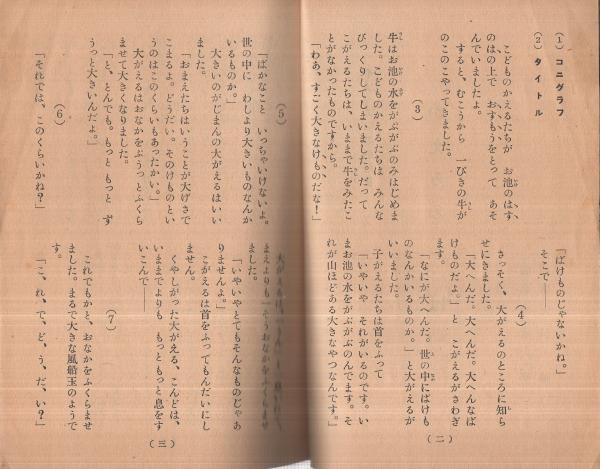 (1) コニグラフ
(2) タイトル
こどものかえるたちが お池のはす
のはの上で おすもうをとって あそ
んでいましたよ。
すると、むこうから 一ぴきの牛が
のこのこやってきました。
(3)
牛はお池の水をがぶがぶのみはじめま
した。こどものかえるたちは みんな
びっくりしてしまいました。だって
こがえるたちは、いままで牛をみたこ
とがなかったものですから。
「わあ、すごく大きなけものだな!」
「ばけものじゃないかね。」
そこで――
(4)
さっそく、大がえるのところに知ら
せにきました。
「大へんだ。大へんだ。大へんなば
けものだよ。」と こがえるがさわぎ
ます。
「なにが大へんだ。世の中にばけも
のなんかいるものか。」と大がえるが
いいました。
子がえるたちは首をふって
「いやいや それがいるのです。い
まお池の水をがぶがぶのんでます。そ
れが山ほどある大きなやつなんです。」
(二)
(5)
「ばかなこと いっちゃいけないよ。
世の中に わしより大きいものなんか
いるものか。」
大きいのがじまんの大がえるはいい
ました。
「おまえたちはいうことが大げさで
こまるよ。どうだい。そのけものとい
うのはこのくらいもあったかい。」
大がえるはおなかをぷうっとふくら
ませて大きくなりました。
「と、とんでも。もっと もっと ず
うっと大きいんだよ。」
(6)
「それでは、このくらいかね?」
まえよりも一そうおなかをふくらませ
「いやいやとてもそんなものじゃあ
りませんよ。」
こがえるは首をふってもんだいにし
ません。
くやしがった大がえる、こんどは、
いままでよりも もっともっと息をす
いこんで――
(7)
これでもかと、おなかをふくらませ
ました。まるで大きな風船玉のようで
す。
「こ、れ、で、ど、う、だ、い?」
(三)